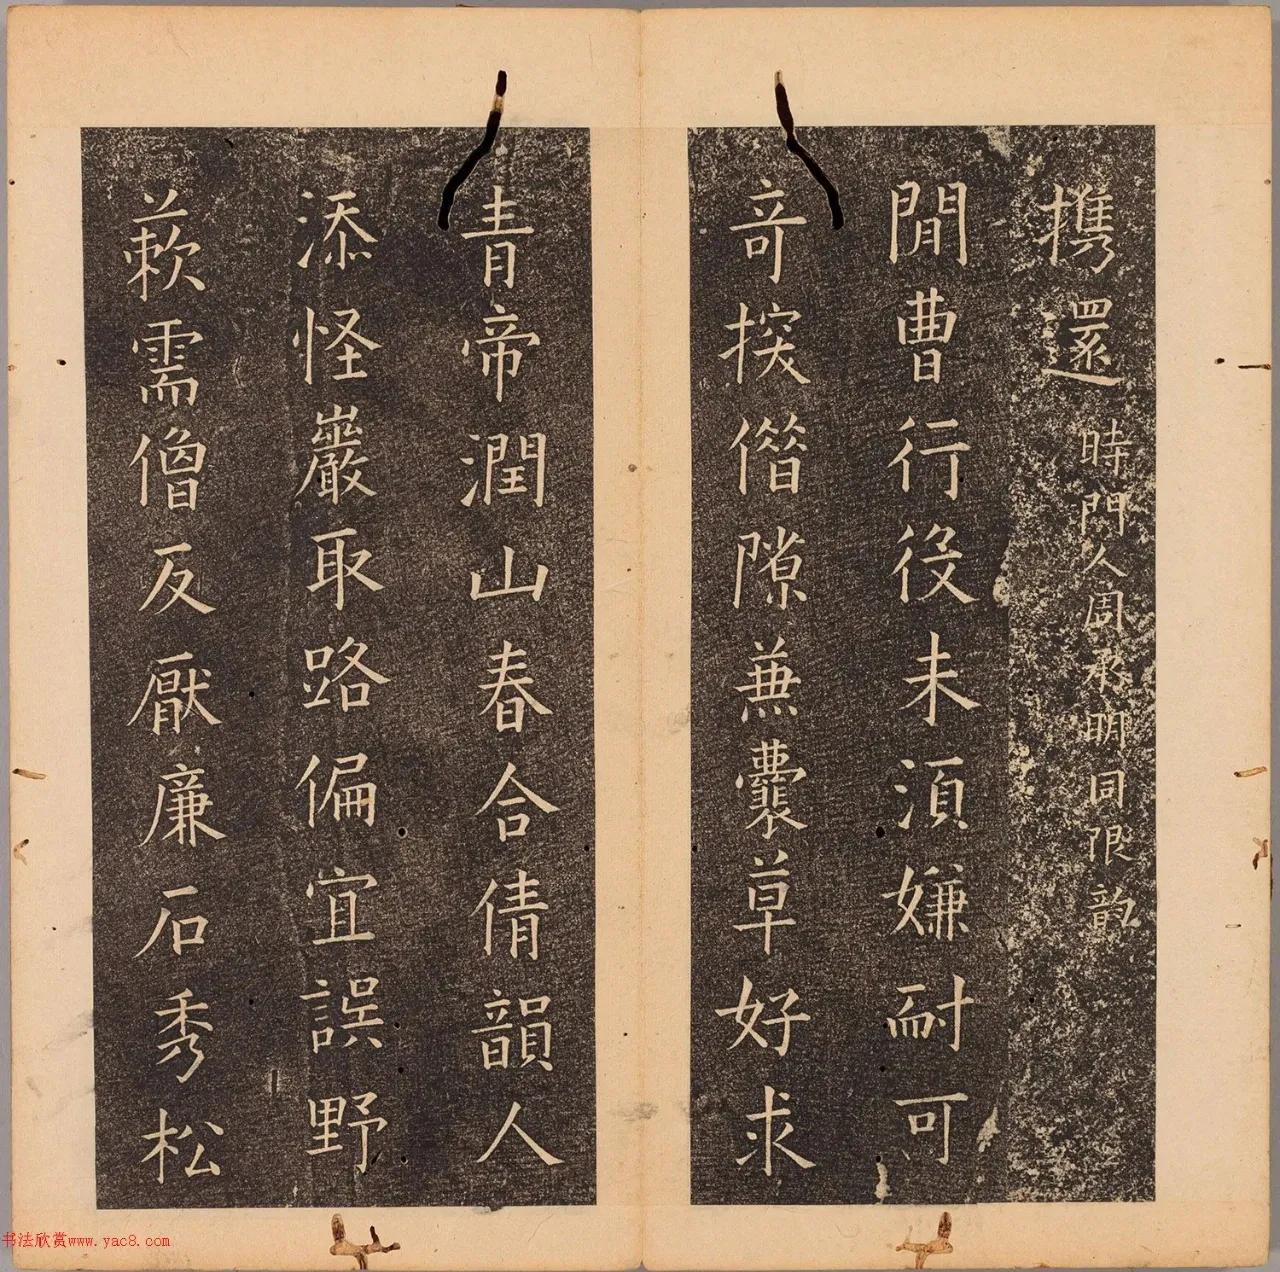 携還 時門人周明同限韵
閒曹行役未須嫌耐可
竒探僭隙兼囊草好求
青帝潤山春合倩韻人
添怪巖取路偏宜誤野
蔌需僧反厭廉石秀松
书法欣赏www.yac8.com